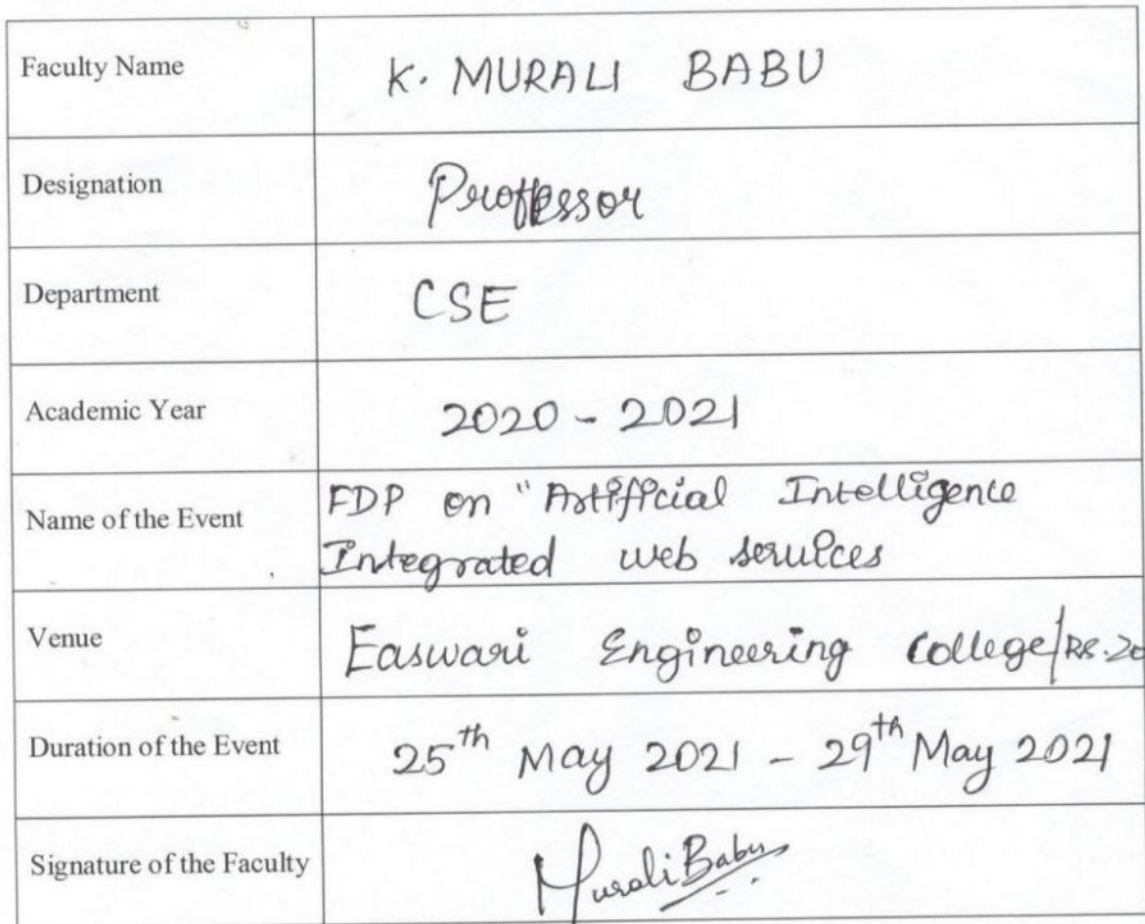 Faculty Name K. MURALI BABU
Designation Professor
Department CSE
Academic Year 2020 - 2021
Name of the Event FDP on "Artificial Intelligence
Integrated web services
Venue Easwari Engineering College/RS.20
Duration of the Event 25th May 2021 - 29th May 2021
Signature of the Faculty Murali Babu